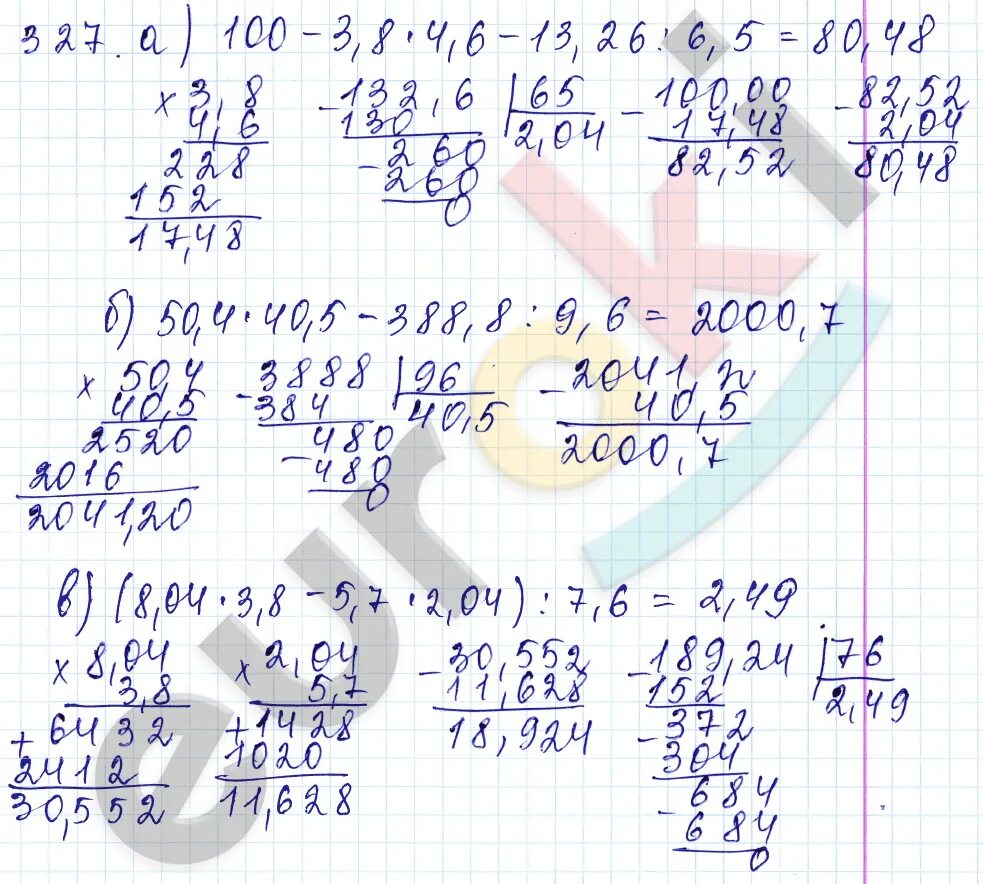 327. а) 100 - 3,8 · 4,6 - 13,26 : 6,5 = 80,48
× 3,8
4,6
228
152
17,48
- 132,6 | 65
130 2,04
- 260
260
0
- 100,00
17,48
82,52
- 82,52
2,04
80,48
б) 50,4 · 40,5 - 388,8 : 9,6 = 2000,7
× 50,4
40,5
2520
2016
2041,20
- 3888 | 96
384 40,5
- 480
480
0
- 2041,2
40,5
2000,7
в) (8,04 · 3,8 - 5,7 · 2,04) : 7,6 = 2,49
× 8,04
3,8
+ 6432
2412
30,552
× 2,04
5,7
+ 1428
1020
11,628
- 30,552
11,628
18,924
- 189,24 | 76
152 2,49
- 372
304
- 684
684
0
euroki